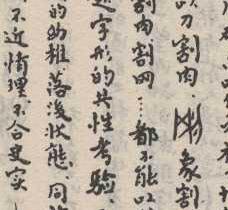 刀割肉象割
割肉割网…都不能以
字形的共性考驗
的幼稚落後狀態同
不近情理不合史实